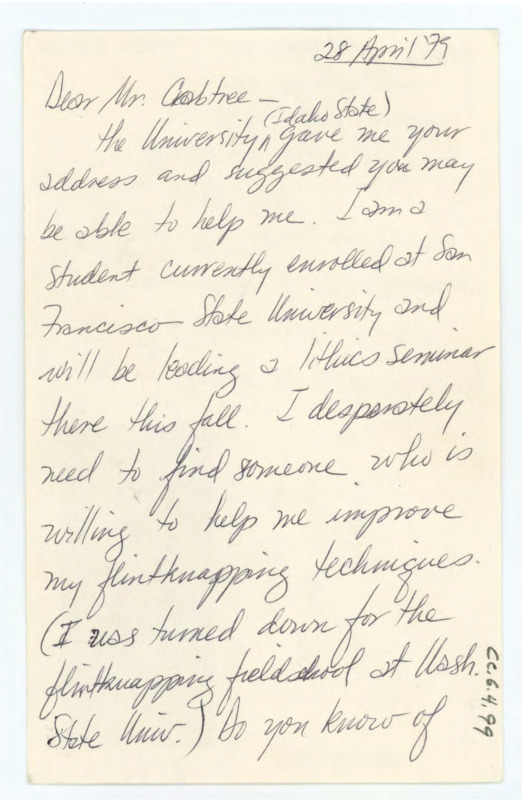 28 April '79
Dear Mr. Crabtree —
(Idaho State)
the University ^ gave me your
address and suggested you may
be able to help me. I am a
student currently enrolled at San
Francisco State University and
will be leading a lithics seminar
there this fall. I desparately
need to find someone who is
willing to help me improve
my flintknapping techniques.
(I was turned down for the
flintknapping fieldschool at Wash.
State Univ.) Do you know of
CC.6.4.99